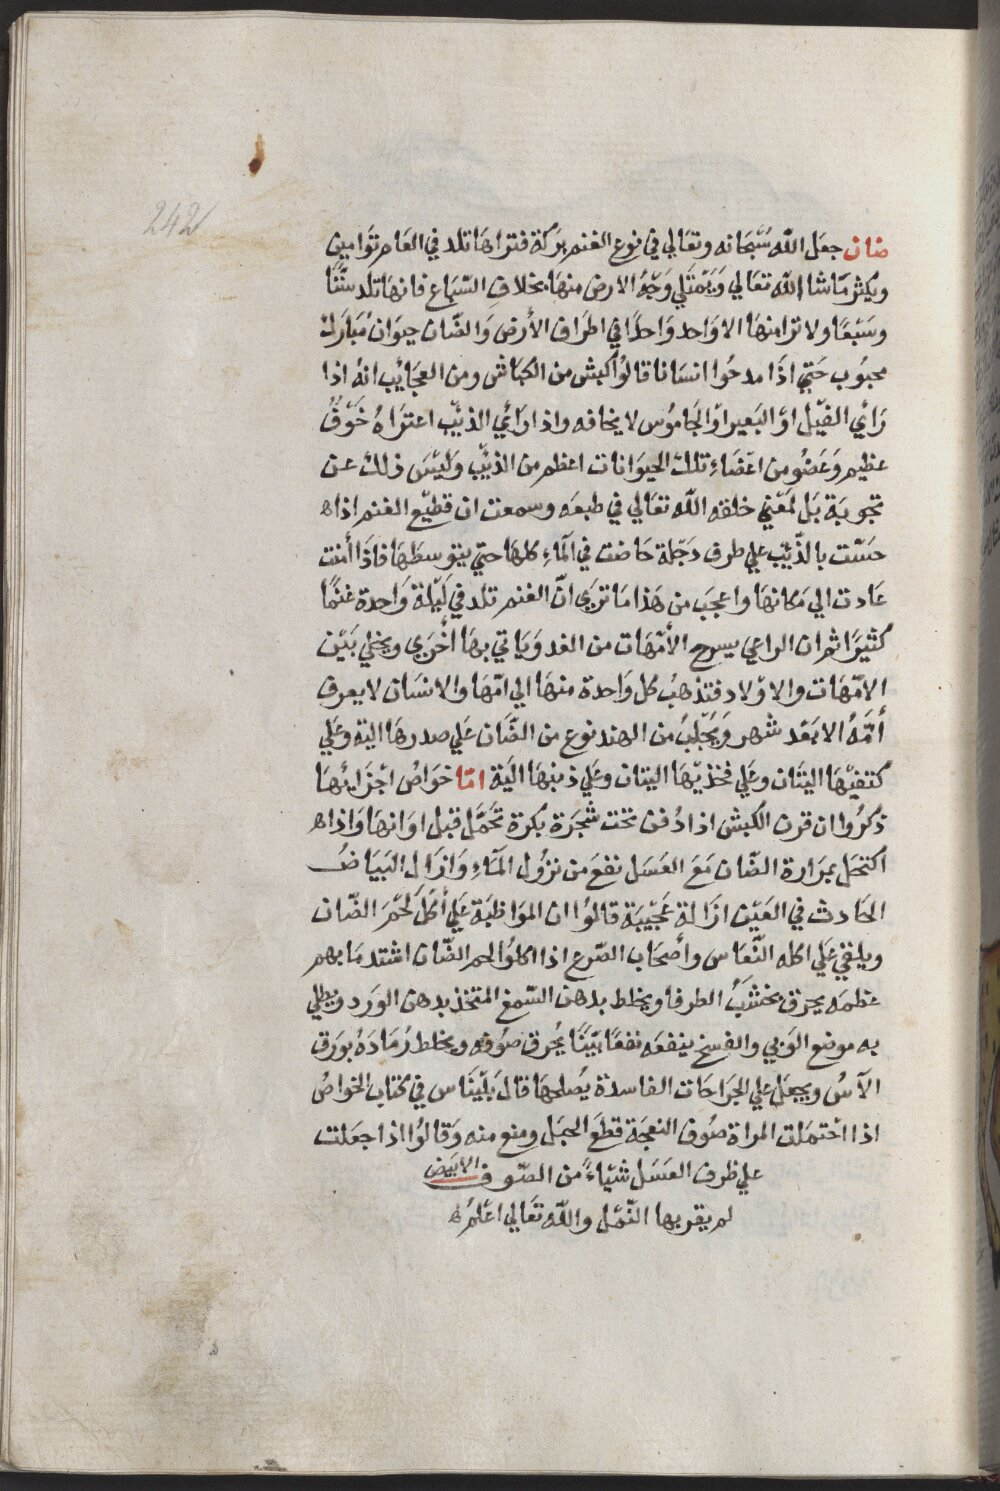 242
ضان جعل الله سُبحانه وتعالي في نوع الغنم بركة فتراها تلد في العام توامين
ويكثر ماشا الله تعالي ويمتلي وجه الارض منها بخلاف السّباع فانها تلد ستًّا
وسَبعًا ولا ترا منها الا واحد واحدًا في اطراف الأرض والضّان حيوان مُبارك
محبوب حتي اذا مدحوا انسانا قالوا كبش من الكباش ومن العجايب انه اذا
رَأي الفيل او البعير او الجاموس لا يخافه واذا رَأي الذيب اعتراهُ خوفٌ
عظيم وعضو من اعضاء تلك الحيوانات اعظم من الذيب وليس ذلك عن
تجربة بل لمعني خلقه الله تعالي في طبعه وسمعت ان قطيع الغنم اذا
حسّت بالذّيب علي طرف دجلة خاضت في الماءِ كلها حتي يتوسطها فاذا أمنت
عادت الي مكانها واعجب من هذا ما تري انّ الغنم تلد في ليلة واحدة غنمًا
كثيرًا ثم ان الراعي يسرح الأمّهات من الغد وياتي بها أخري ويخلي بين
الامّهات والاولاد فتذهب كل واحدة منها الي امّها والانسان لا يعرف
أمّهُ الا بعد شهر ويُجلبُ من الهند نوع من الضّان علي صدرها الية وعلي
كتفيها اليتان وعلي فخذيها اليتان وعلي ذنبها الية امّا خواص اجزايها
ذكروا ان قرن الكبش اذا دُفن تحت شجرة بكرة تحمل قبل اوانها واذا
اكتحل بمرارة الضّان مع العسل نفع من نزول الماءِ وازال البياض
الحادث في العين ازالة عجيبة قالوا ان المواظبة علي أكل لحم الضّان
ويلقي علي اكله النّعاس وأصحاب الصّرع اذا اكلوا لحم الضّان اشتد ما بهم
عظمه يحرق بخشبُ الطرفا ويخلط بدهن الشمع المتخذ بدهن الورد ويطلي
به موضع الوَثي والفسخ ينفعه نفعًا بيّنًا يُحرق صُوفه ويخلط رُمادهُ بورق
الآسُ ويجعل علي الجراحات الفاسدة يُصلحها قال بلّيناس في كتاب الخواصُ
اذا احتملت المراة صُوف النعجة قطع الحبل ومنع منه وقالوا اذا جعلت
علي ظرف العسل شيّاءً من الصّوف الابيض
لم يقربها النّمل والله تعالي اعلم